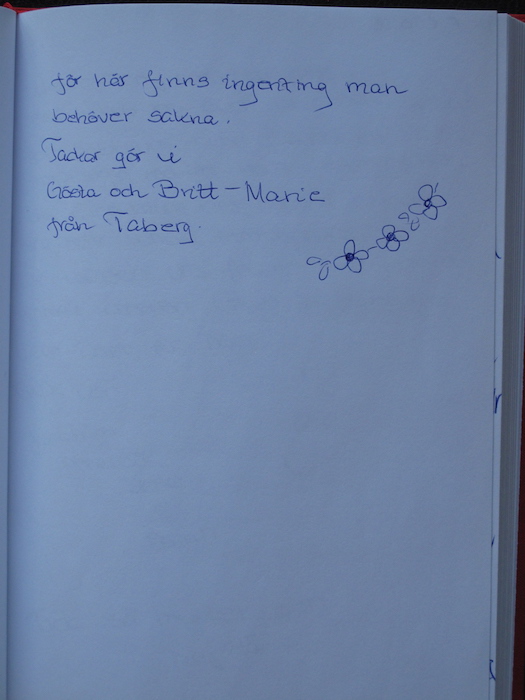 för här finns ingenting man
behöver sakna.
Tackar gör vi
Gösta och Britt-Marie
från Taberg.